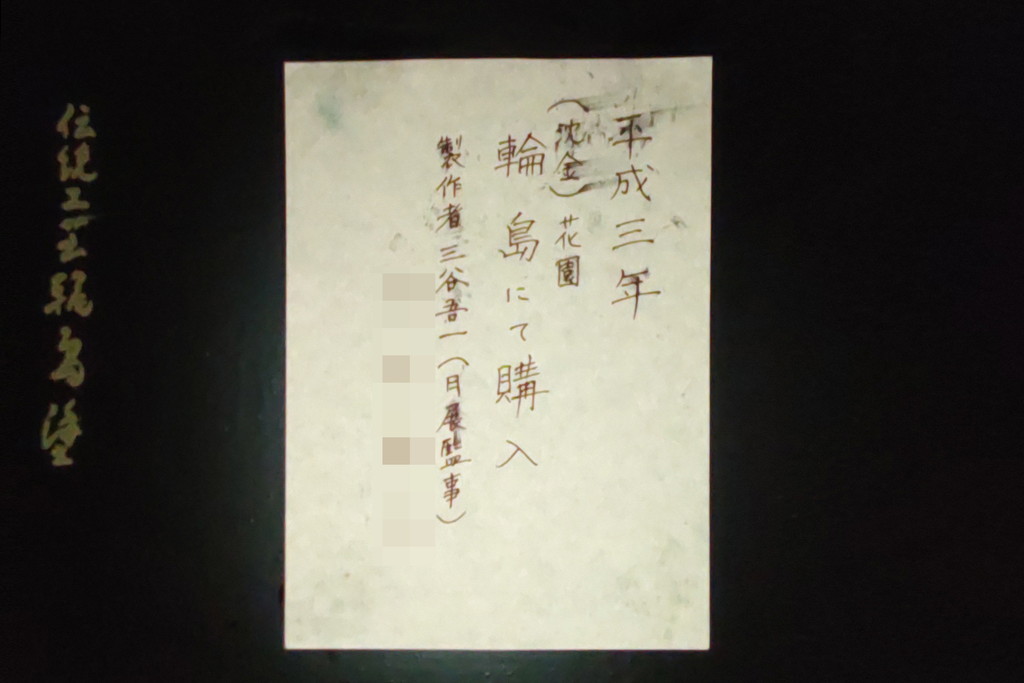 平成三年
(沈金)花園
輪島にて購入
製作者三谷吾一(日展監事)
伝統工芸輪島塗